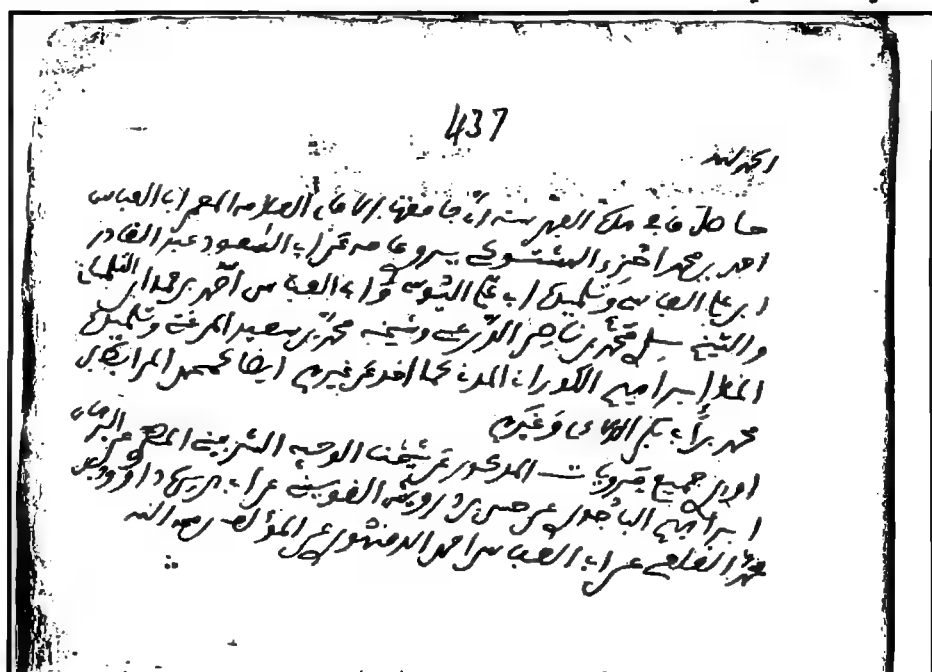 437
الحمد لله
حاصل ما في هذه الفهرسة أن جامعها الإمام العلامة المعمر أبا العباس
أحمد بن محمد أحزي الهشتوكي يروي عامة عن أبي السعود عبد القادر
ابن علي الفاسي وتلميذه أبي علي اليوسي وأبي العباس أحمد بن حمدان التلمساني
والشيخ سيدي محمد بن ناصر الدرعي وشيخه محمد بن سعيد المرغتي وتلميذه
الملا إبراهيم الكوراني المدني كما أخذ عن غيرهم أيضا كمحمد المرابط بن
محمد بن أبي بكر الدلائي وغيرهم
أروي جميع مرويات المذكور عن شيخنا الوجيه الشريف المعمر عن البرهان
إبراهيم الباجوري عن حسن بن درويش القويسني عن أبي هريرة داوود بن
محمد القلعي عن أبي العباس أحمد الدمنهوري عن المؤلف رحمه الله